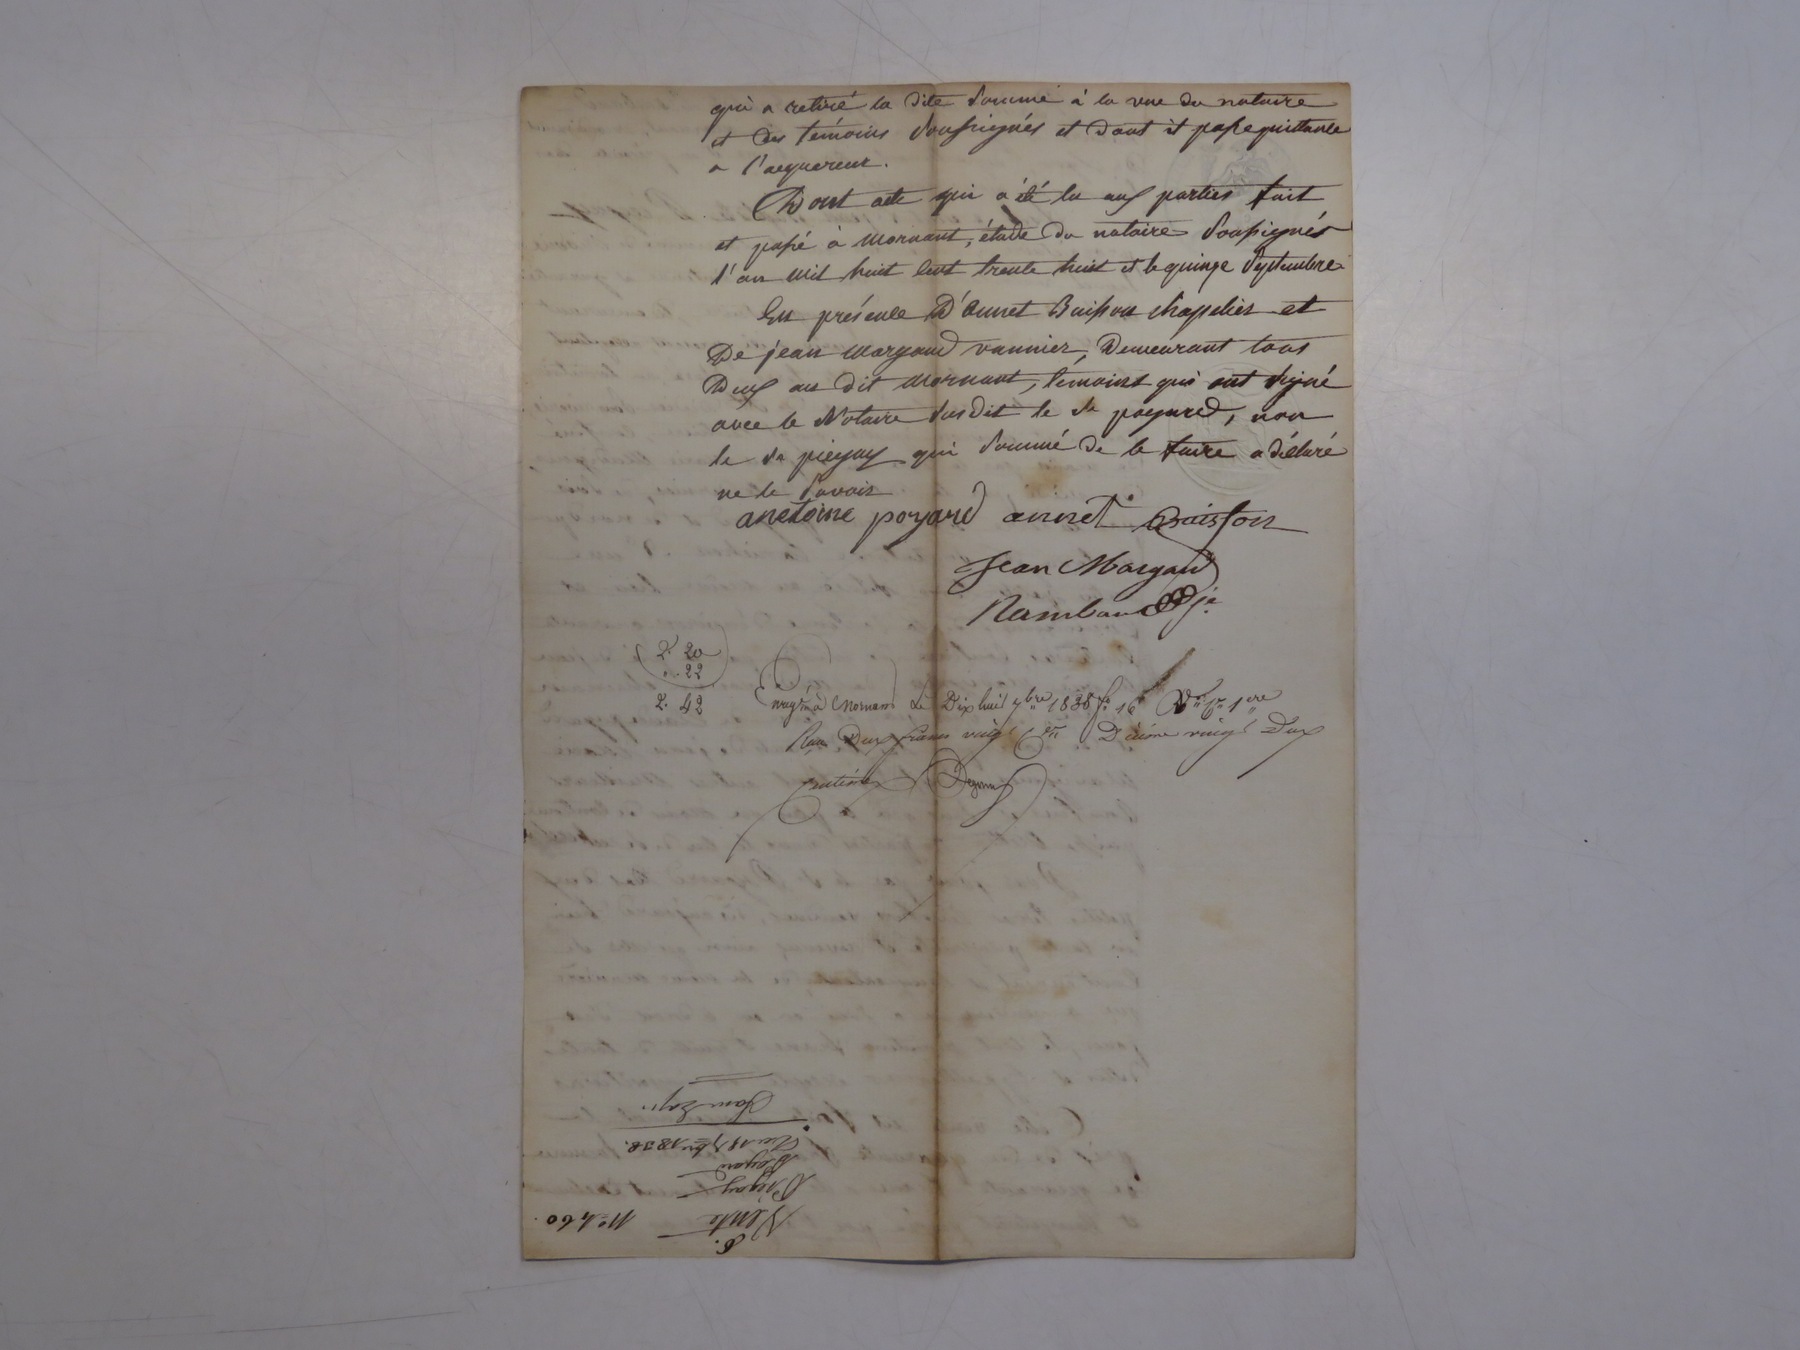 qui a retiré la dite somme à la vue du notaire
et des temoins soussignés et dont il passe quittance
a l'aequereur.
Dont acte qui a été lu aux parties fait
et passé à Mornant, étude du notaire soussigné
l'an mil huit cent trente huit et le quinze Septembre
En présence D'annet Buisson chapelier et
De jean Margaud vannier, Demeurant tous
Deux au dit Mornant, temoins qui ont signé
avec le Notaire susdit le Sr poyard, non
le Sr piegay qui sommé de le faire a déclaré
ne le savoir
anetoine poyard annet Buisson
Jean Margaud
Rambaud
2. 20
.. 22
2. 42
Enregré à Mornant Le Dix huit 7bre 1838 fo 16
Reçu Deux francs vingt Dixième vingt Deux
centimes
6.
Vente No 460.
Piégay
Poyard
Du 15 7bre 1838.